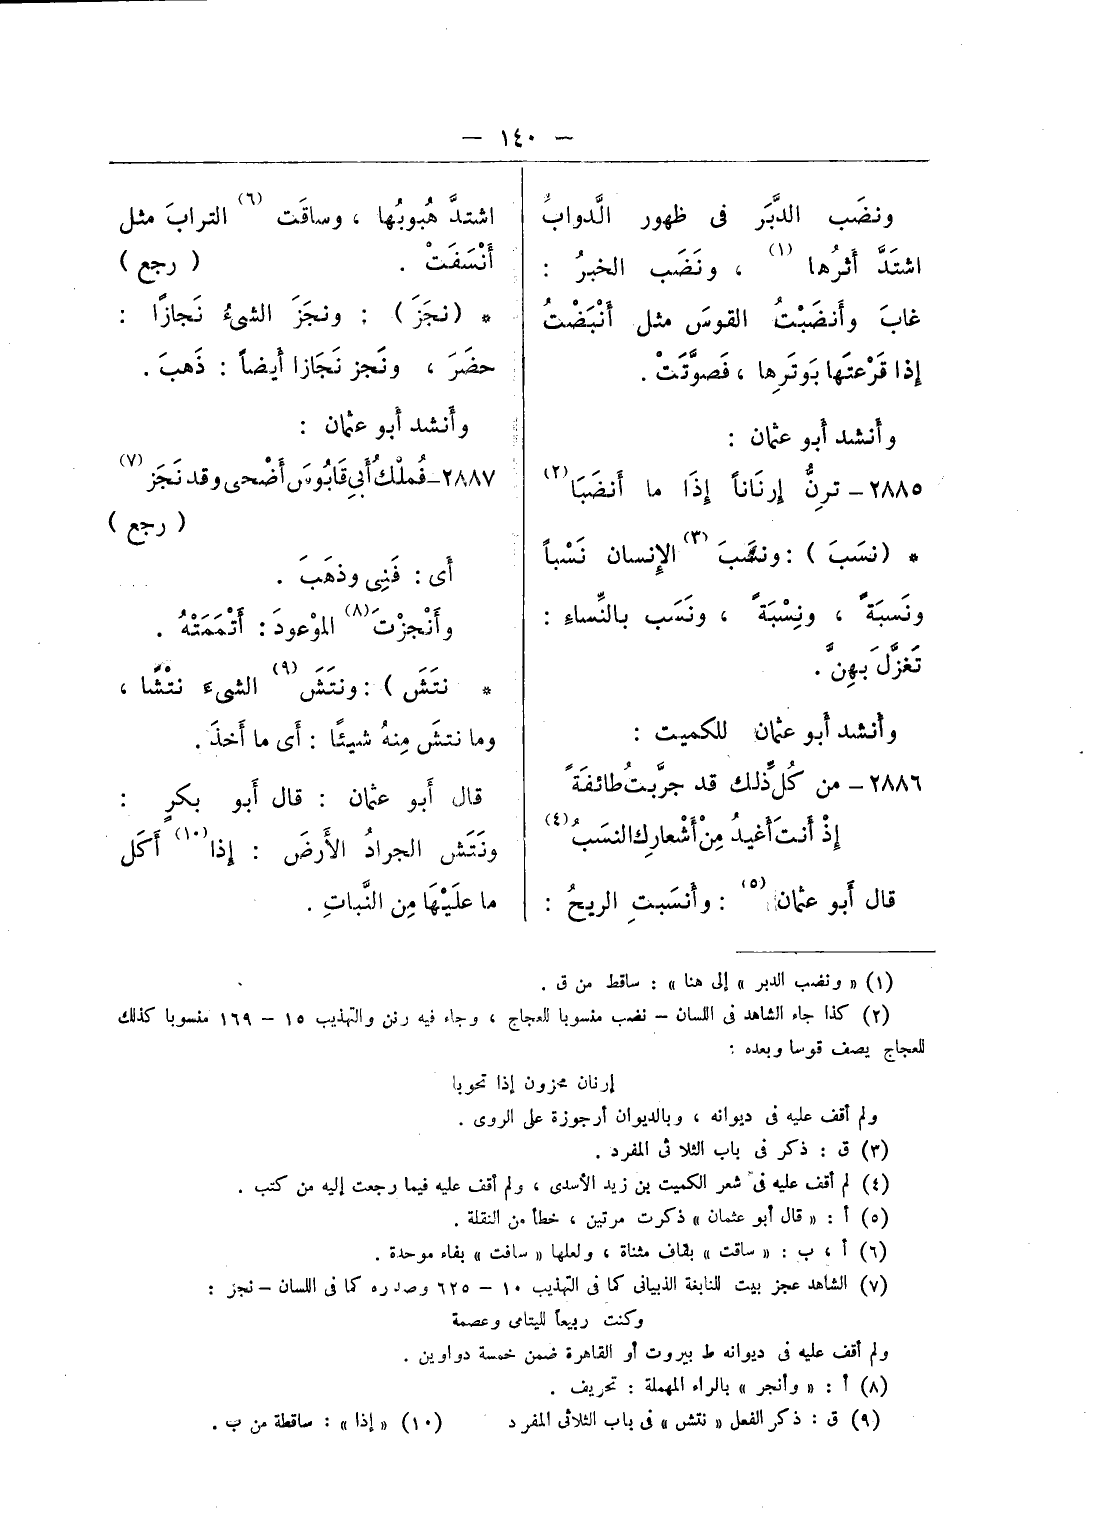 — ١٤٠ —
ونضَب الدَّبَر فى ظهور الَّدوابُ
اشتَدَّ أثرُها (١) ، ونَضَب الخبرُ :
غابَ وأنضَبْتُ القوسَ مثل أَنْبَضْتُ
إذا قَرْعتَها بَوتَرِها ، فَصوَّتَتْ .
وأنشد أبو عثمان :
٢٨٨٥ – ترِنُّ إرنَاناً إذَا ما أَنضَبَا (٢)
* (نسَبَ ) : ونسَبَ (٣) الإنسان نَسْباً
ونَسبَةً ، ونِسْبَةً ، ونَسَب بالنِّساءِ :
تَغزَّلَ بَهِنَّ .
وأنشد أبو عثمان للكميت :
٢٨٨٦ – من كُلِّ ذلك قد جرَّبتُ طائفَةً
إذْ أنت أغيدُ مِنْ أشعارِك النسَبُ (٤)
قال أبو عثمان (٥) : وأنسَبتِ الريحُ :
اشتدَّ هُبوبُها ، وساقَت (٦) الترابَ مثل
أنْسَفَتْ . ( رجع )
* (نجَزَ ) : ونجَزَ الشىءُ نَجازًا :
حضَرَ ، ونَجز نَجَازا أيضاً : ذَهبَ .
وأنشد أبو عثمان :
٢٨٨٧ – فُملْكُ أبِى قَابُوسَ أضْحى وقد نَجَز (٧)
( رجع )
أى : فَنِى وذهَبَ .
وأنْجزْتَ (٨) الموْعودَ : أَتْمَمَتْهُ .
* نتَشَ ) : ونتَشَ (٩) الشىءَ نتْشًا ،
وما نتشَ مِنهُ شيئًا : أى ما أخذَ .
قال أبو عثمان : قال أبو بكرٍ :
ونَتَش الجرادُ الأرضَ : إذا (١٠) أكَل
ما علَيْهَا مِن النَّباتِ .
(١) « ونضب الدبر » إلى هنا » : ساقط من ق .
(٢) كذا جاء الشاهد فى اللسان – نضب منسوبا للعجاج ، وجاء فيه رنن والتهذيب ١٥ – ١٦٩ منسوبا كذلك
للعجاج يصف قوسا وبعده :
إرنان محزون إذا تحوبا
ولم أقف عليه فى ديوانه ، وبالديوان أرجوزة على الروى .
(٣) ق : ذكر فى باب الثلاثى المفرد .
(٤) لم أقف عليه فى شعر الكميت بن زيد الأسدى ، ولم أقف عليه فيما رجعت إليه من كتب .
(٥) أ : « قال أبو عثمان » ذكرت مرتين ، خطأ من النقلة .
(٦) أ ، ب : « ساقت » بقاف مثناة ، ولعلها « سافت » بفاء موحدة .
(٧) الشاهد عجز بيت للنابغة الذبيانى كما فى التهذيب ١٠ – ٦٢٥ وصدره كما فى اللسان – نجز :
وكنت ربيعاً لليتامى وعصمة
ولم أقف عليه فى ديوانه ط بيروت أو القاهرة ضمن خمسة دواوين .
(٨) أ : « وأنجر » بالراء المهملة : تحريف .
(٩) ق : ذكر الفعل « نتش » فى باب الثلاثى المفرد (١٠) « إذا » : ساقطة من ب .